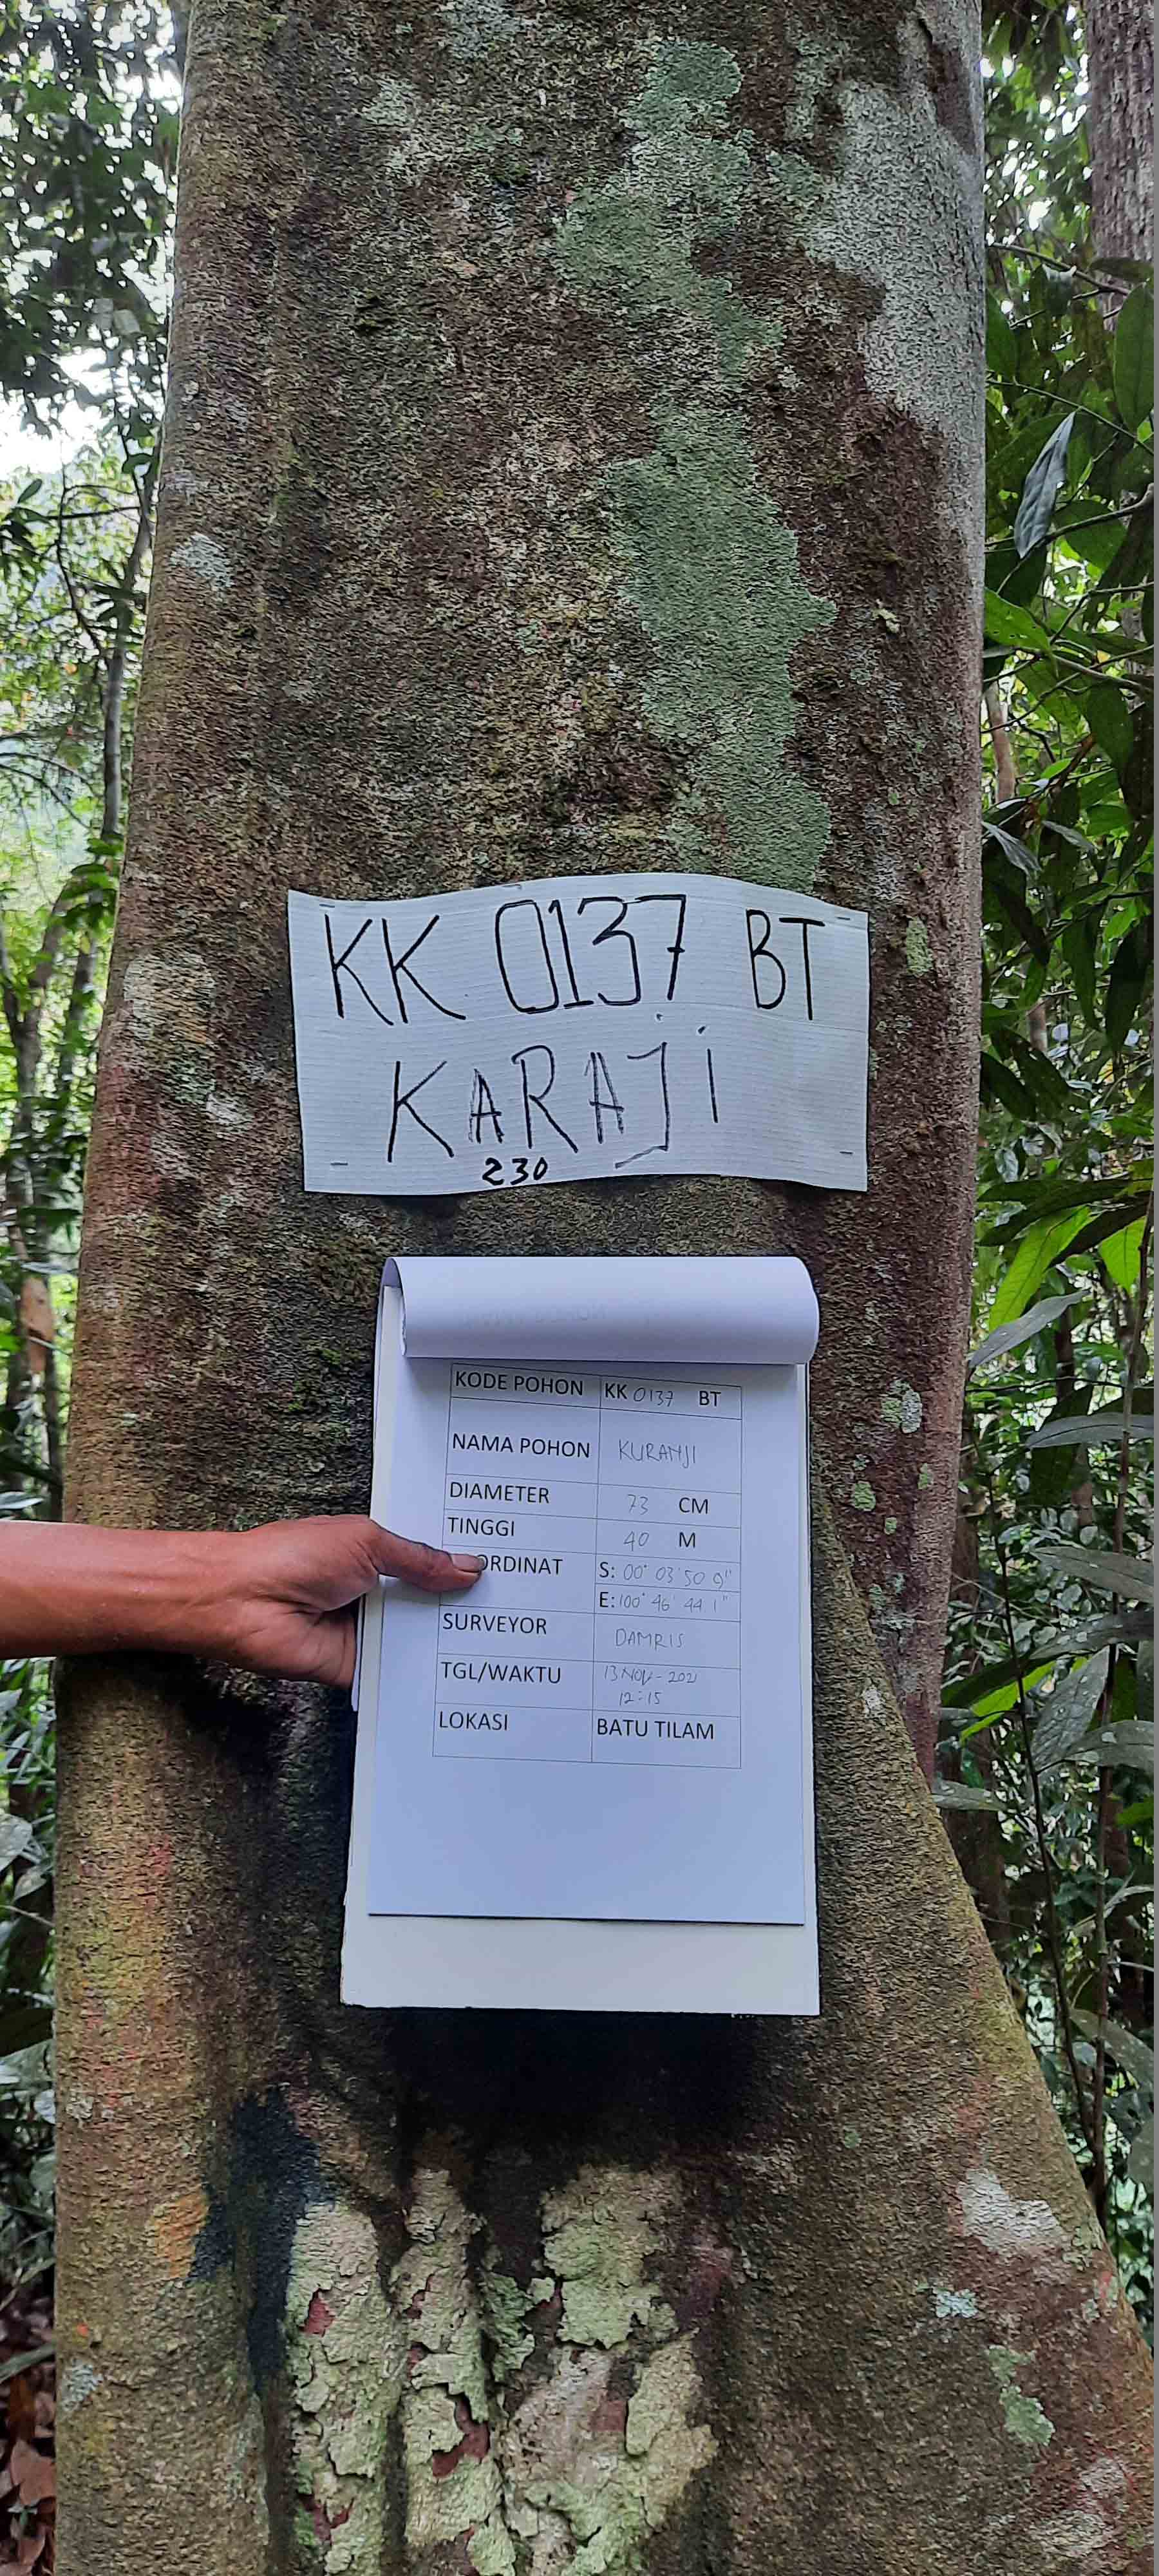 KK 0137 BT
KARAJi
230
KODE POHON KK 0137 BT
NAMA POHON KURANJI
DIAMETER 73 CM
TINGGI 40 M
ORDINAT S: 00° 03' 50 9"
E: 100° 46' 44.1"
SURVEYOR DAMRIS
TGL/WAKTU 13 NOV - 2021
12:15
LOKASI BATU TILAM